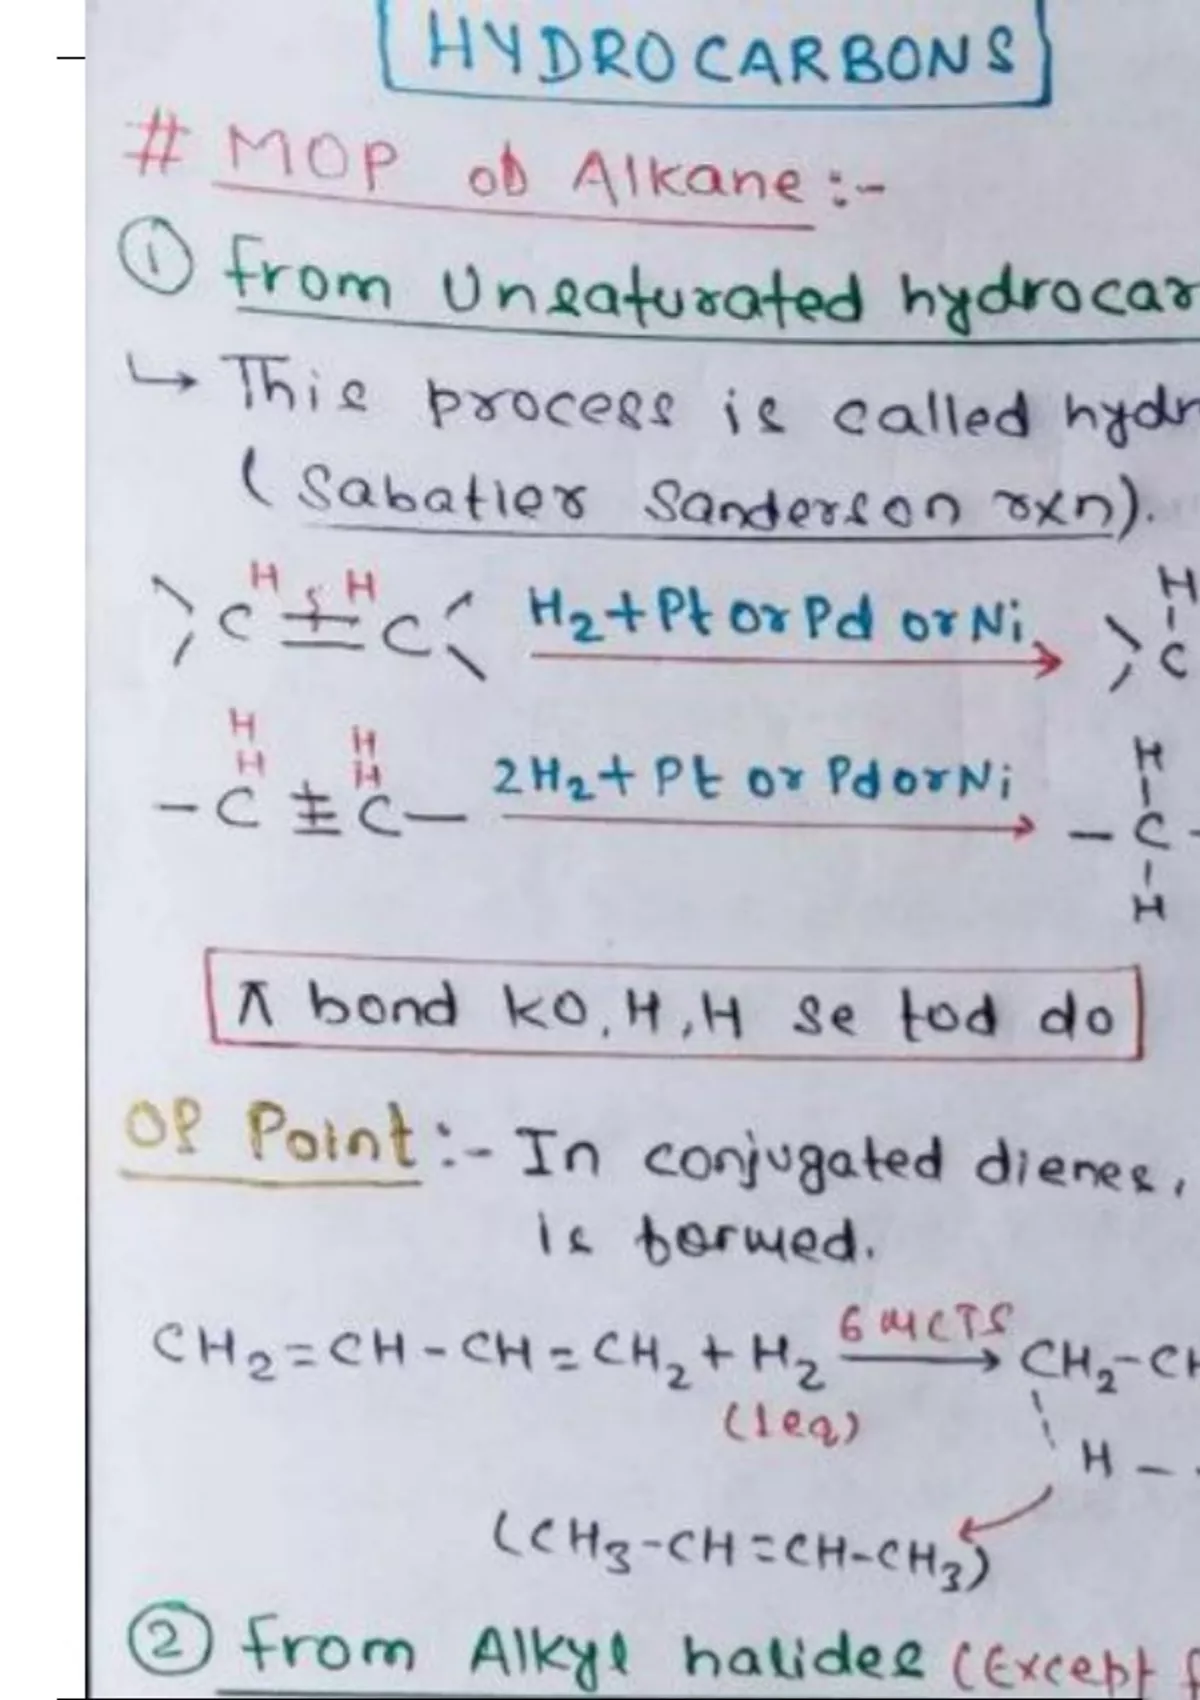 HYDROCARBONS
# MOP of Alkane :-
① From Unsaturated hydrocar
↳ This process is called hydr
(Sabatier Sanderson rxn).
H H H
C = C H₂ + Pt or Pd or Ni C
H H H
H H
- C ≡ C - 2H₂ + Pt or Pd or Ni - C -
H
π bond ko, H, H se tod do
OP Point :- In conjugated dienes,
is formed.
CH₂=CH-CH=CH₂ + H₂ 6 MCTS CH₂-CH
(1eq)
H -
(CH₃-CH=CH-CH₃)
② From Alkyl halides (Except f